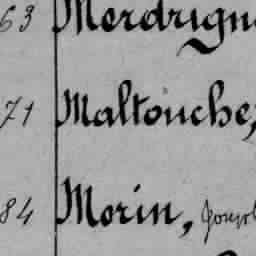 63 Merdrign
71 Maltouche,
84 Morin, Joseph